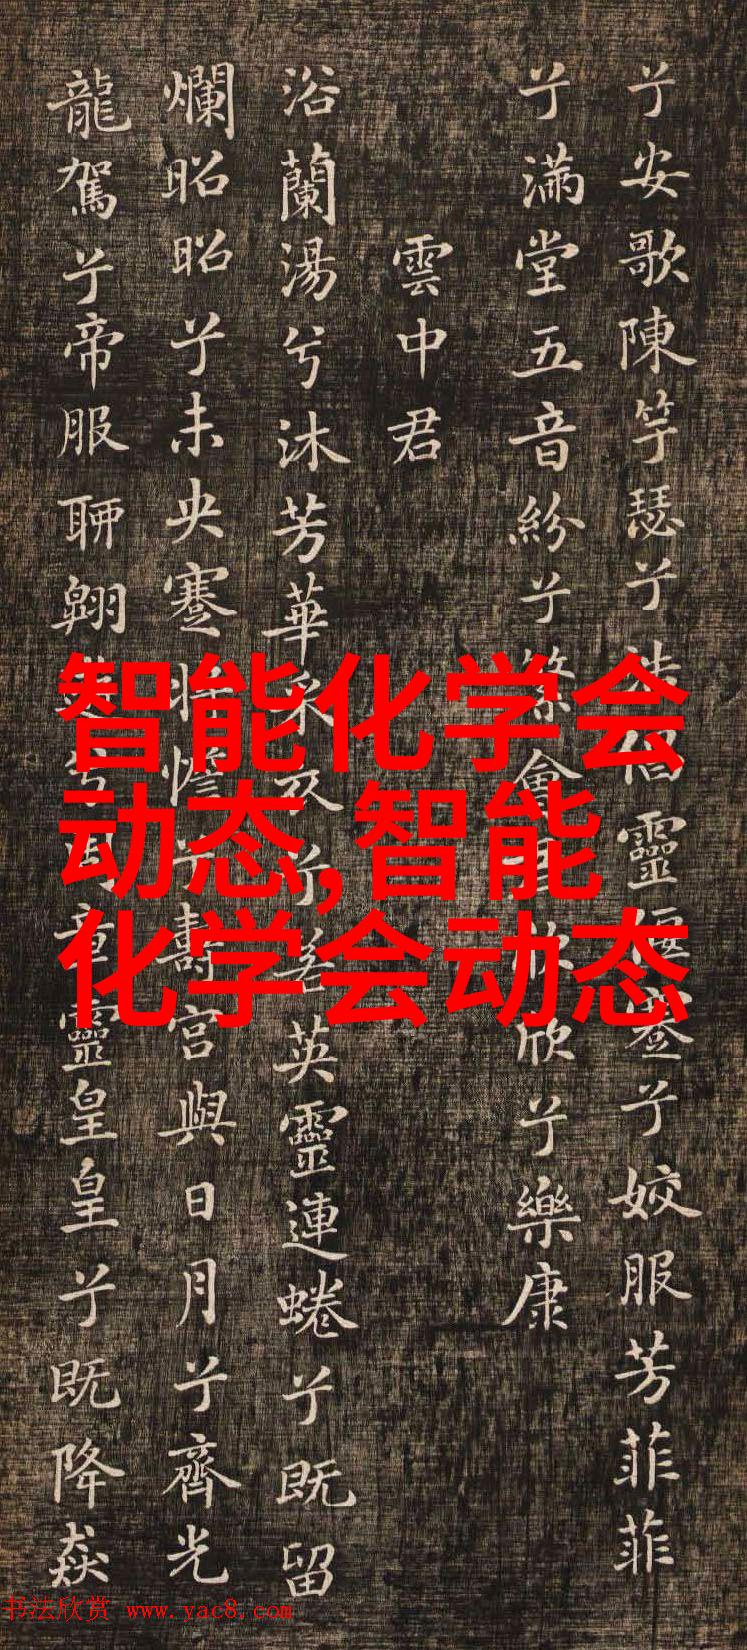 兮安歌陳竽瑟兮浩倡靈偃蹇兮姣服芳菲菲
兮滿堂五音紛兮繁會欣欣兮樂康
雲中君
浴蘭湯兮沐芳華采衣兮若英靈連蜷兮既留
爛昭昭兮未央蹇將憺兮壽宮與日月兮齊光
龍駕兮帝服聊翱兮周章靈皇皇兮既降猋
智能化学会
动态,智能
化学会动态
书法欣赏 www.yac8.com